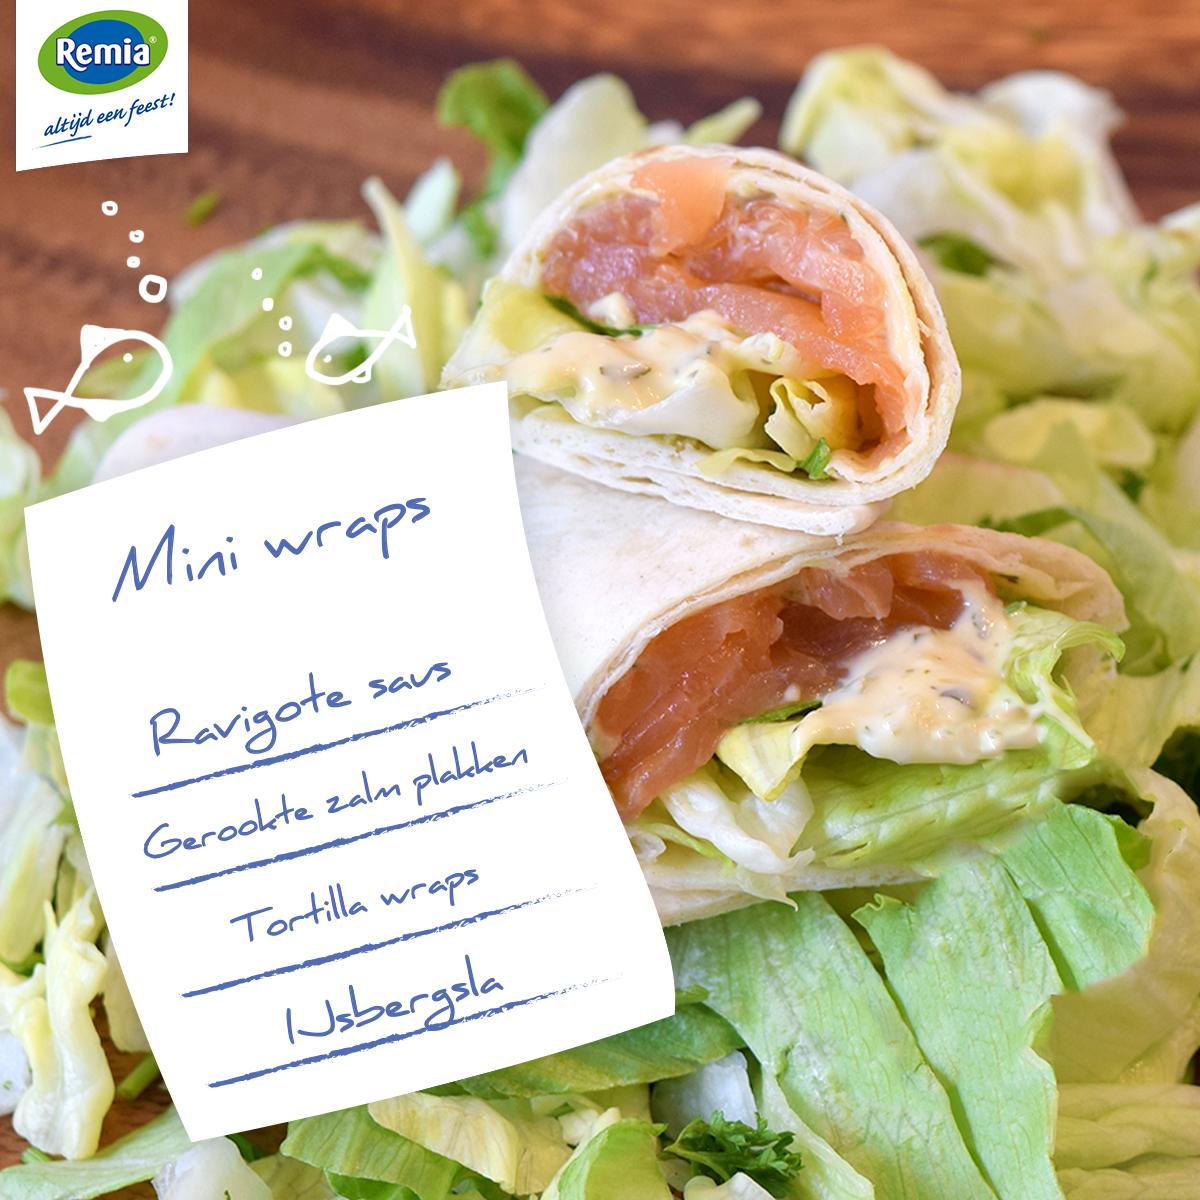 Remia®
altijd een feest!
Mini wraps
Ravigote saus
Gerookte zalm plakken
Tortilla wraps
IJsbergsla